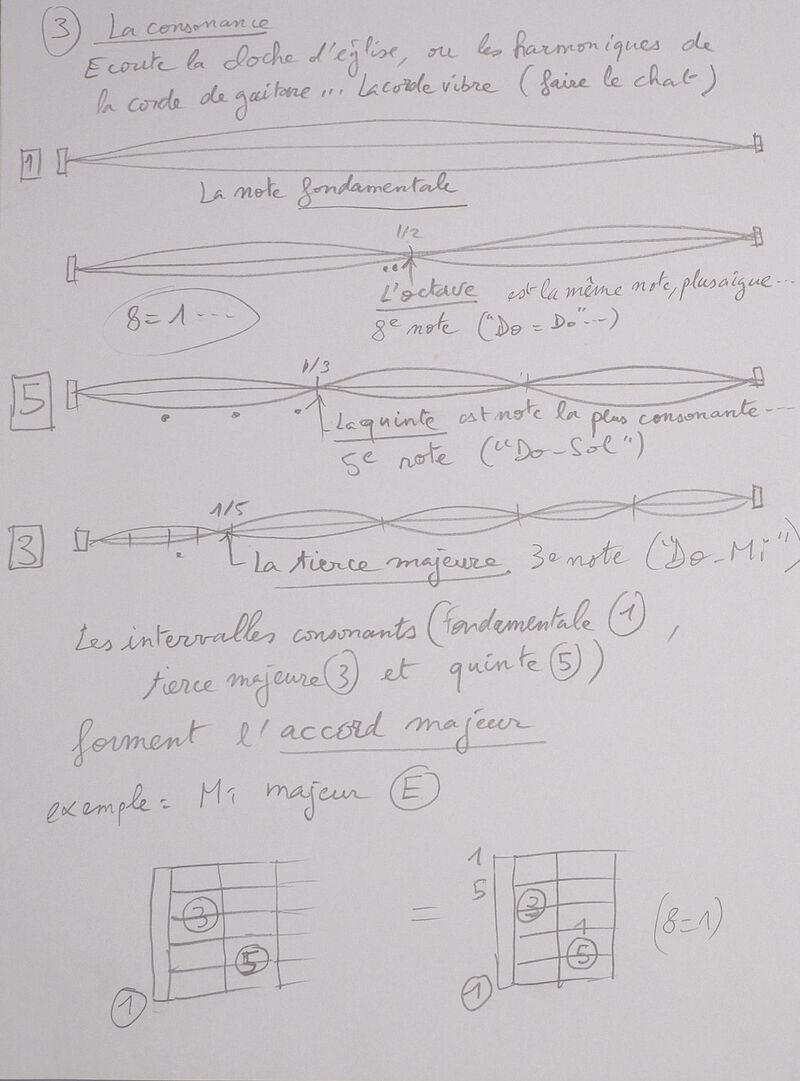 ③ La consonance
Ecoute la cloche d'église, ou les harmoniques de
la corde de guitare... La corde vibre (faire le chat)
1
La note fondamentale
1/2
L'octave est la même note, plus aigue...
8 = 1 ...
8e note ("Do = Do"...)
1/3
5
La quinte est note la plus consonante...
5e note ("Do-Sol")
1/5
3
La tierce majeure, 3e note ("Do-Mi")
Les intervalles consonants (fondamentale ①,
tierce majeure ③ et quinte ⑤)
forment l'accord majeur
exemple = Mi majeur Ⓔ
1
5
③ = ③ (8=1)
1
⑤ ⑤
① ①